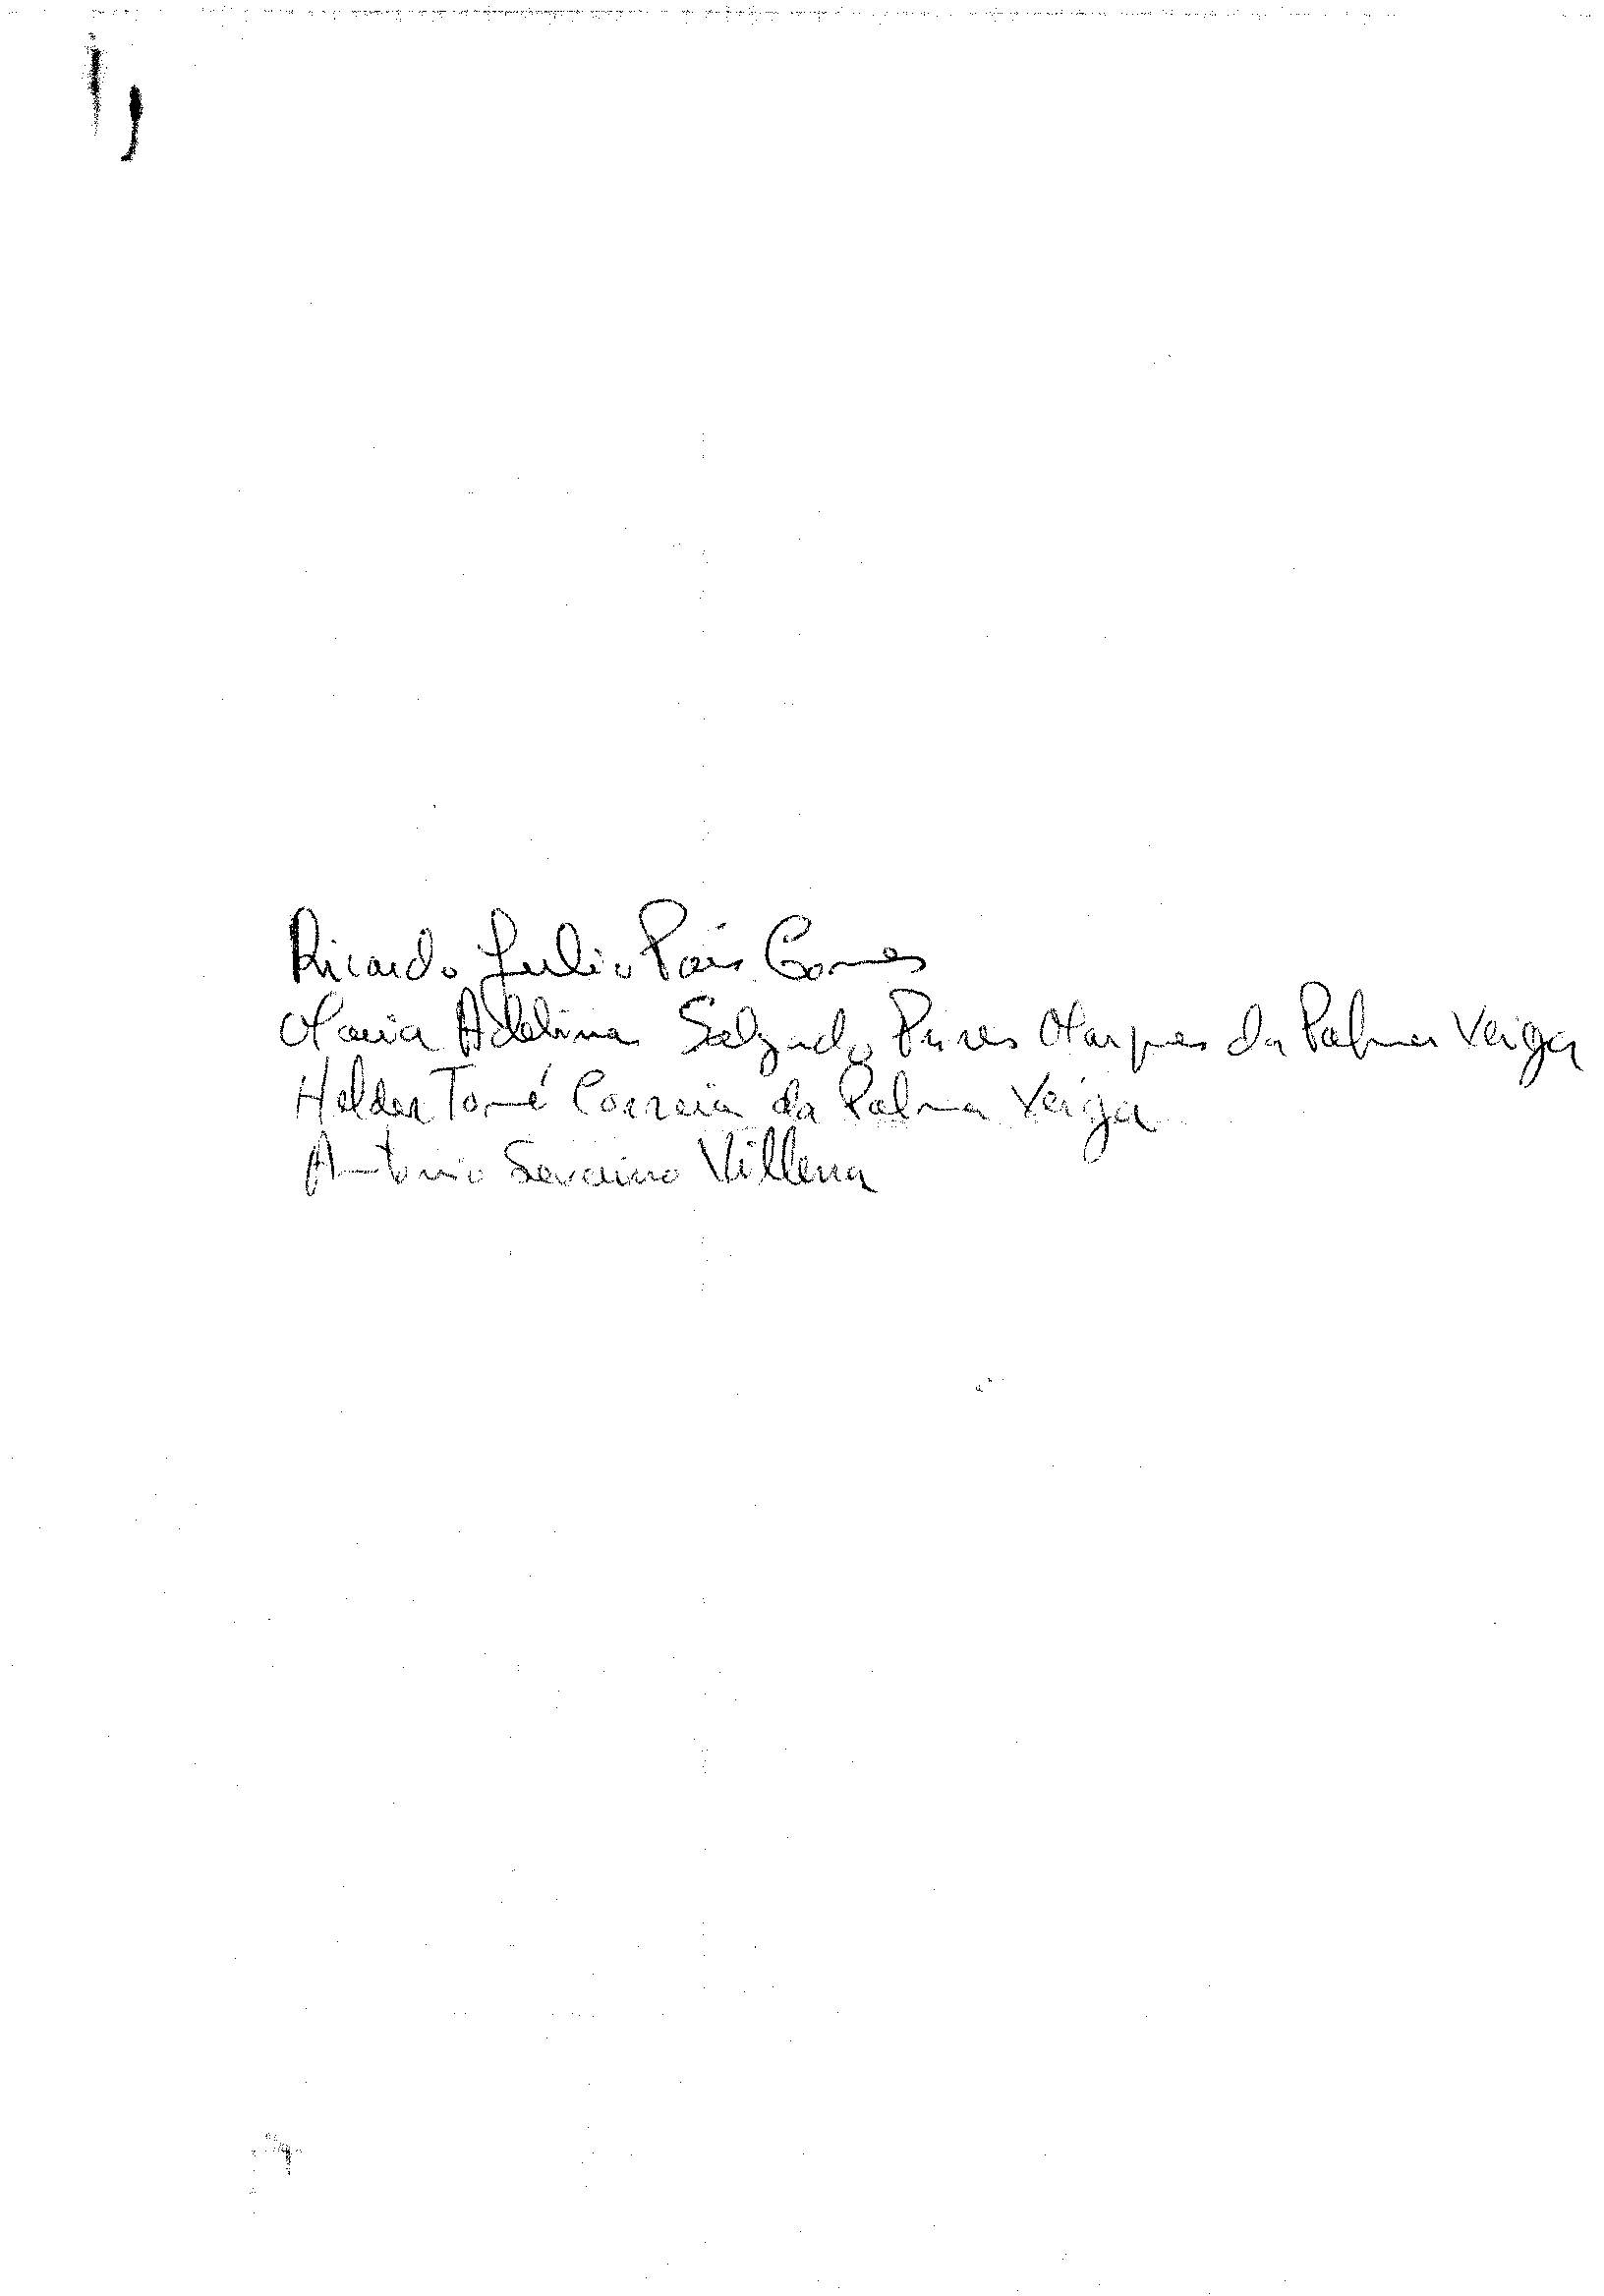 Ricardo Julio Pais Gomes
Maria Adelina Salgado Pires Marques da Palma Veiga
Helder Tomé Correia da Palma Veiga
Antonio Severino Villena